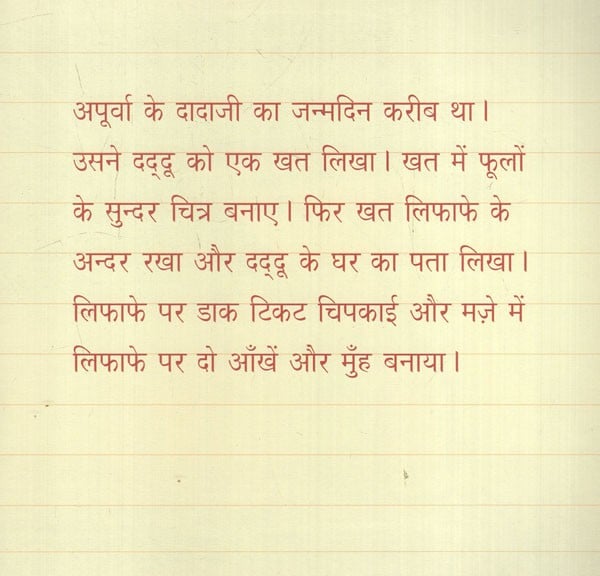 अपूर्वा के दादाजी का जन्मदिन करीब था।
उसने दद्दू को एक खत लिखा। खत में फूलों
के सुन्दर चित्र बनाए। फिर खत लिफाफे के
अन्दर रखा और दद्दू के घर का पता लिखा।
लिफाफे पर डाक टिकट चिपकाई और मज़े में
लिफाफे पर दो आँखें और मुँह बनाया।